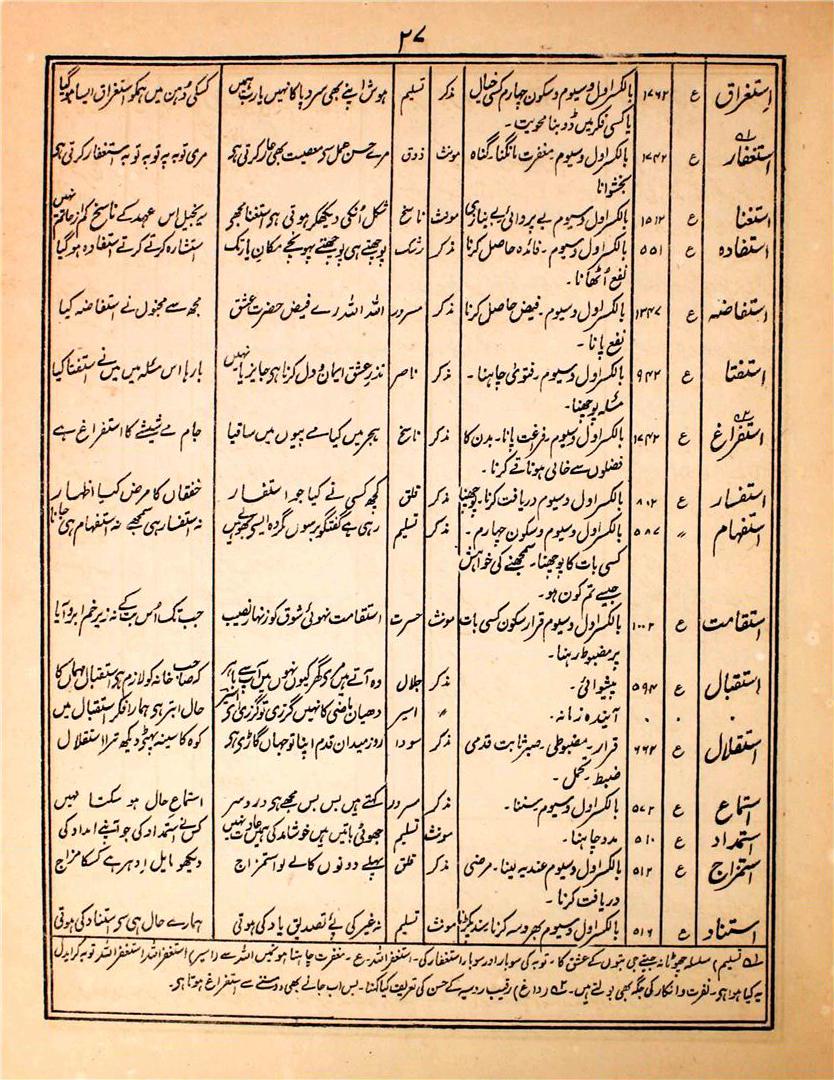 ۲۷
اِستغراق ع ۱۷۶۲ بالکسر اول و سیوم و سکون چہارم کسی خیال مذکر تسلیم ہوش اپنے بھی سر دپا کا نہیں یارب ہمیں کسکی دُہن میں ہمکو استغراق ایسا ہو گیا
یا کسی فکر میں ڈوبنا محویت۔
استغفار ع ۱۷۴۲ بالکسر اول و سیوم مغفرت مانگنا۔ گناہ مونث ذوق مرے حسن عمل سے معصیت بھی عار کرتی ہو مری توبہ پہ توبہ توبہ استغفار کرتی ہو
بخشوانا
استغنا ع ۱۵۱۲ بالکسر اول و سیوم بے پروائی بے نیازی مونث ناسخ شکل اُنکی دیکھکر ہوتی ہو استغنا مجھے یہ بخیل اس عہد کے ناسخ کم از حاتم نہیں
استفادہ ع ۵۵۱ بالکسر اول و سیوم۔ فائدہ حاصل کرنا مذکر رشک پوچھتے ہی پوچھتے پہونچے مکانِ یار تک استشارہ کرتے کرتے استفادہ ہو گیا
نفع اُٹھانا۔
استفاضہ ع ۱۳۴۷ بالکسر اول و سیوم۔ فیض حاصل کرنا مذکر مسرور اللہ اللہ رے فیض حضرتِ عشق مجھ سے مجنوں نے استفاضہ کیا
نفع پانا۔
استفتا ع ۹۴۲ بالکسر اول و سیوم۔ فتویٰ چاہنا۔ مذکر ناصر نذرِ عشق ایمان و دل کرنا ہو جایز یا نہیں بارہا اس مسئلہ میں میں نے استفتا کیا
مسئلہ پوچھنا۔
استفراغ ع ۱۷۴۲ بالکسر اول و سیوم۔ فرغت پانا۔ بدن کا مذکر ناسخ ہجر میں کیا مے پیوں میں ساقیا جام مے شیشے کا استفراغ ہے
فضلوں سے خالی ہونا قے کرنا۔
استفسار ع ۸۰۲ بالکسر اول و سیوم دریافت کرنا۔ پوچھنا مذکر قلق کچھ کسی نے کیا جو استفسار خفقاں کا مرض کیا اظہار
استفہام 〃 ۵۸۷ بالکسر اول و سیوم و سکون چہارم۔ مذکر تسلیم رہی ہے گفتگو برسوں گر وہ ایسے نہ استفسار ہی سمجھے نہ استفہام ہی جانا
کسی بات کا پوچھنا۔ سمجھنے کی خواہش
جیسے تم کون ہو۔
استقامت ع ۱۰۰۲ بالکسر اول و سیوم قرار سکون کسی بات مونث حسرت استقامت نہوئی شوق کو زنہار نصیب جب تک اُس بت کے نہ زیر خم ابرو آیا
پر مضبوط رہنا۔
استقبال ع ۵۹۴ پیشوائی۔ مذکر جلال وہ آتے ہیں مری گھر کیوں نہوں میں آپ سے باہر کہ صاحب خانہ کو لازم ہو استقبال مہماں کا
۰ ۰ ۰ آیندہ زمانہ۔ 〃 اسیر دھیان ماضی کا نہیں گزری تو گزری حال ابتر ہی ہمارا فکر استقبال میں
استقلال ع ۶۶۲ قرار۔ مضبوطی۔ صبر ثابت قدمی مذکر سودا روز میدان قدم اپنا تو جہاں گاڑی ہو کوہ کا سینہ پھٹے دیکھ ترا استقلال
ضبط۔ تحمل۔
استماع ع ۵۷۲ بالکسر اول و سیوم سننا۔ مذکر سرور کہتے ہیں بس بس مجھے ہو درد سر استماع حال ہو سکتا نہیں
استمداد ع ۵۱۰ مدد چاہنا۔ مونث تسلیم جھوٹی باتیں ہیں خوشامد کی ہمیں عادت نہیں کس نے استمداد کی جو آپنے امداد کی
استمزاج ع ۵۱۲ بالکسر اول و سیوم عندیہ لینا۔ مرضی مذکر قلق پہلے دونوں کا لے لو استمزاج دیکھو مایل اِدھر ہے کسکا مزاج
دریافت کرنا۔
استناد ع ۵۱۶ بالکسر اول و سیوم بھروسہ کرنا سند پکڑنا مونث تسلیم نہ غیر کی پئے تصدیق یاد کی ہوتی ہمارے حال ہی سے استناد کی ہوتی
۱؎ تسلیم) سلسلہ چھوٹا نہ جیتے جی بتوں کے عشق کا۔ توبہ کی سو بار اور سو بار استغفار کی۔ استغفر اللہ۔ ع۔ مغفرت چاہتا ہوں میں اللہ سے (اسیر) استغفر اللہ استغفر اللہ توبہ کر ایدل
یہ کیا ہوا ہو۔ نفرت و انکار کی جگہ بھی بولتے ہیں۔ ۲؎ (داغ) رقیب روسیہ کے حسن کی تعریف کیا کہنا۔ بس اب جانے بھی دو سننے سے استفراغ ہوتا ہو۔